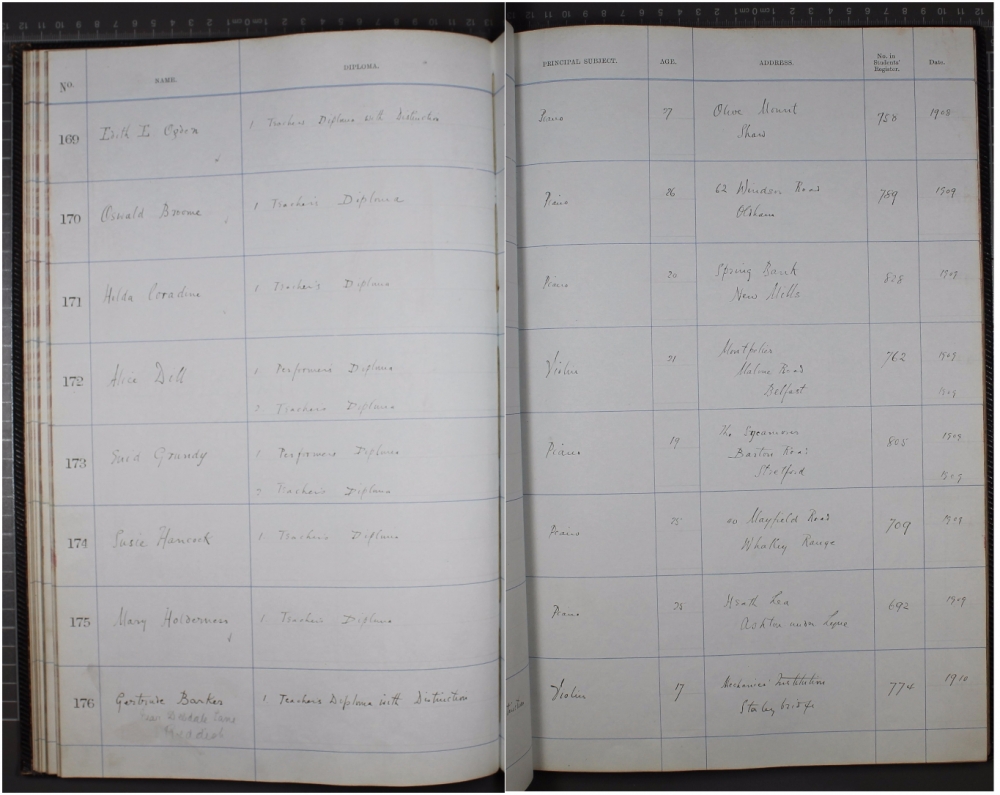 No. NAME. DIPLOMA. PRINCIPAL SUBJECT. AGE. ADDRESS. No. in Students' Register. Date.
169 Edith E. Ogden 1 Teachers Diploma with Distinction Piano 27 Olive Mount 758 1908
Shaw
170 Oswald Broome 1 Teacher's Diploma Piano 26 62 Road 789 1909
Oldham
171 Hilda Coradine 1 Teacher's Diploma Piano 20 Spring Bank 828 1909
New Mills
172 Alice Dell 1 Performers Diploma Violin 21 Montpelier 762 1909
Malone Road
2. Teachers Diploma Belfast 1909
173 Enid Grundy 1 Performers Diploma Piano 19 The Sycamores 805 1909
Barton Road
2 Teachers Diploma Stretford 1909
174 Susie Hancock 1. Teachers Diploma Piano 25 Mayfield Road 709 1909
Whalley Range
175 Mary Holderness 1. Teachers Diploma Piano Heath Lea 692 1909
Ashton under Lyne
176 Gertrude Barker 1 Teachers Diploma with Distinction Violin 17 Mechanics Institution 774 1910
Lane Stalybridge